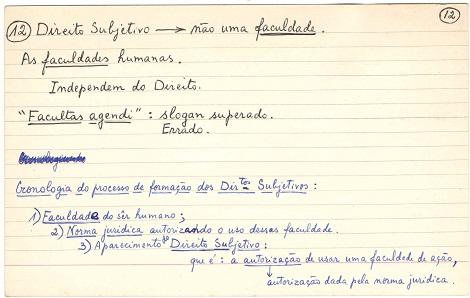 12 Direito Subjetivo → não uma faculdade. 12
As faculdades humanas.
Independem do Direito.
"Facultas agendi" : slogan superado.
Errado.
Cronologia do processo de formação dos Dirtos Subjetivos :
1) Faculdade do ser humano ;
2) Norma jurídica autorizando o uso dessas faculdade.
3) Aparecimento do Direito Subjetivo :
que é : a autorização de usar uma faculdade de ação,
autorização dada pela norma jurídica.